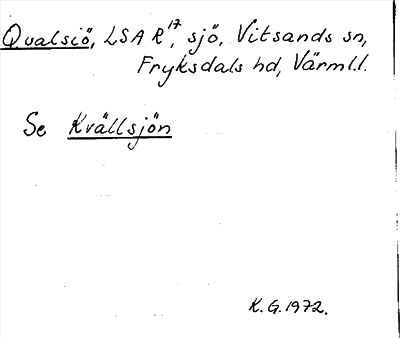 Qvalsiö, LSA R 17, sjö, Vitsands sn,
Fryksdals hd, Värml.
Se Kvällsjön
K.G. 1972.